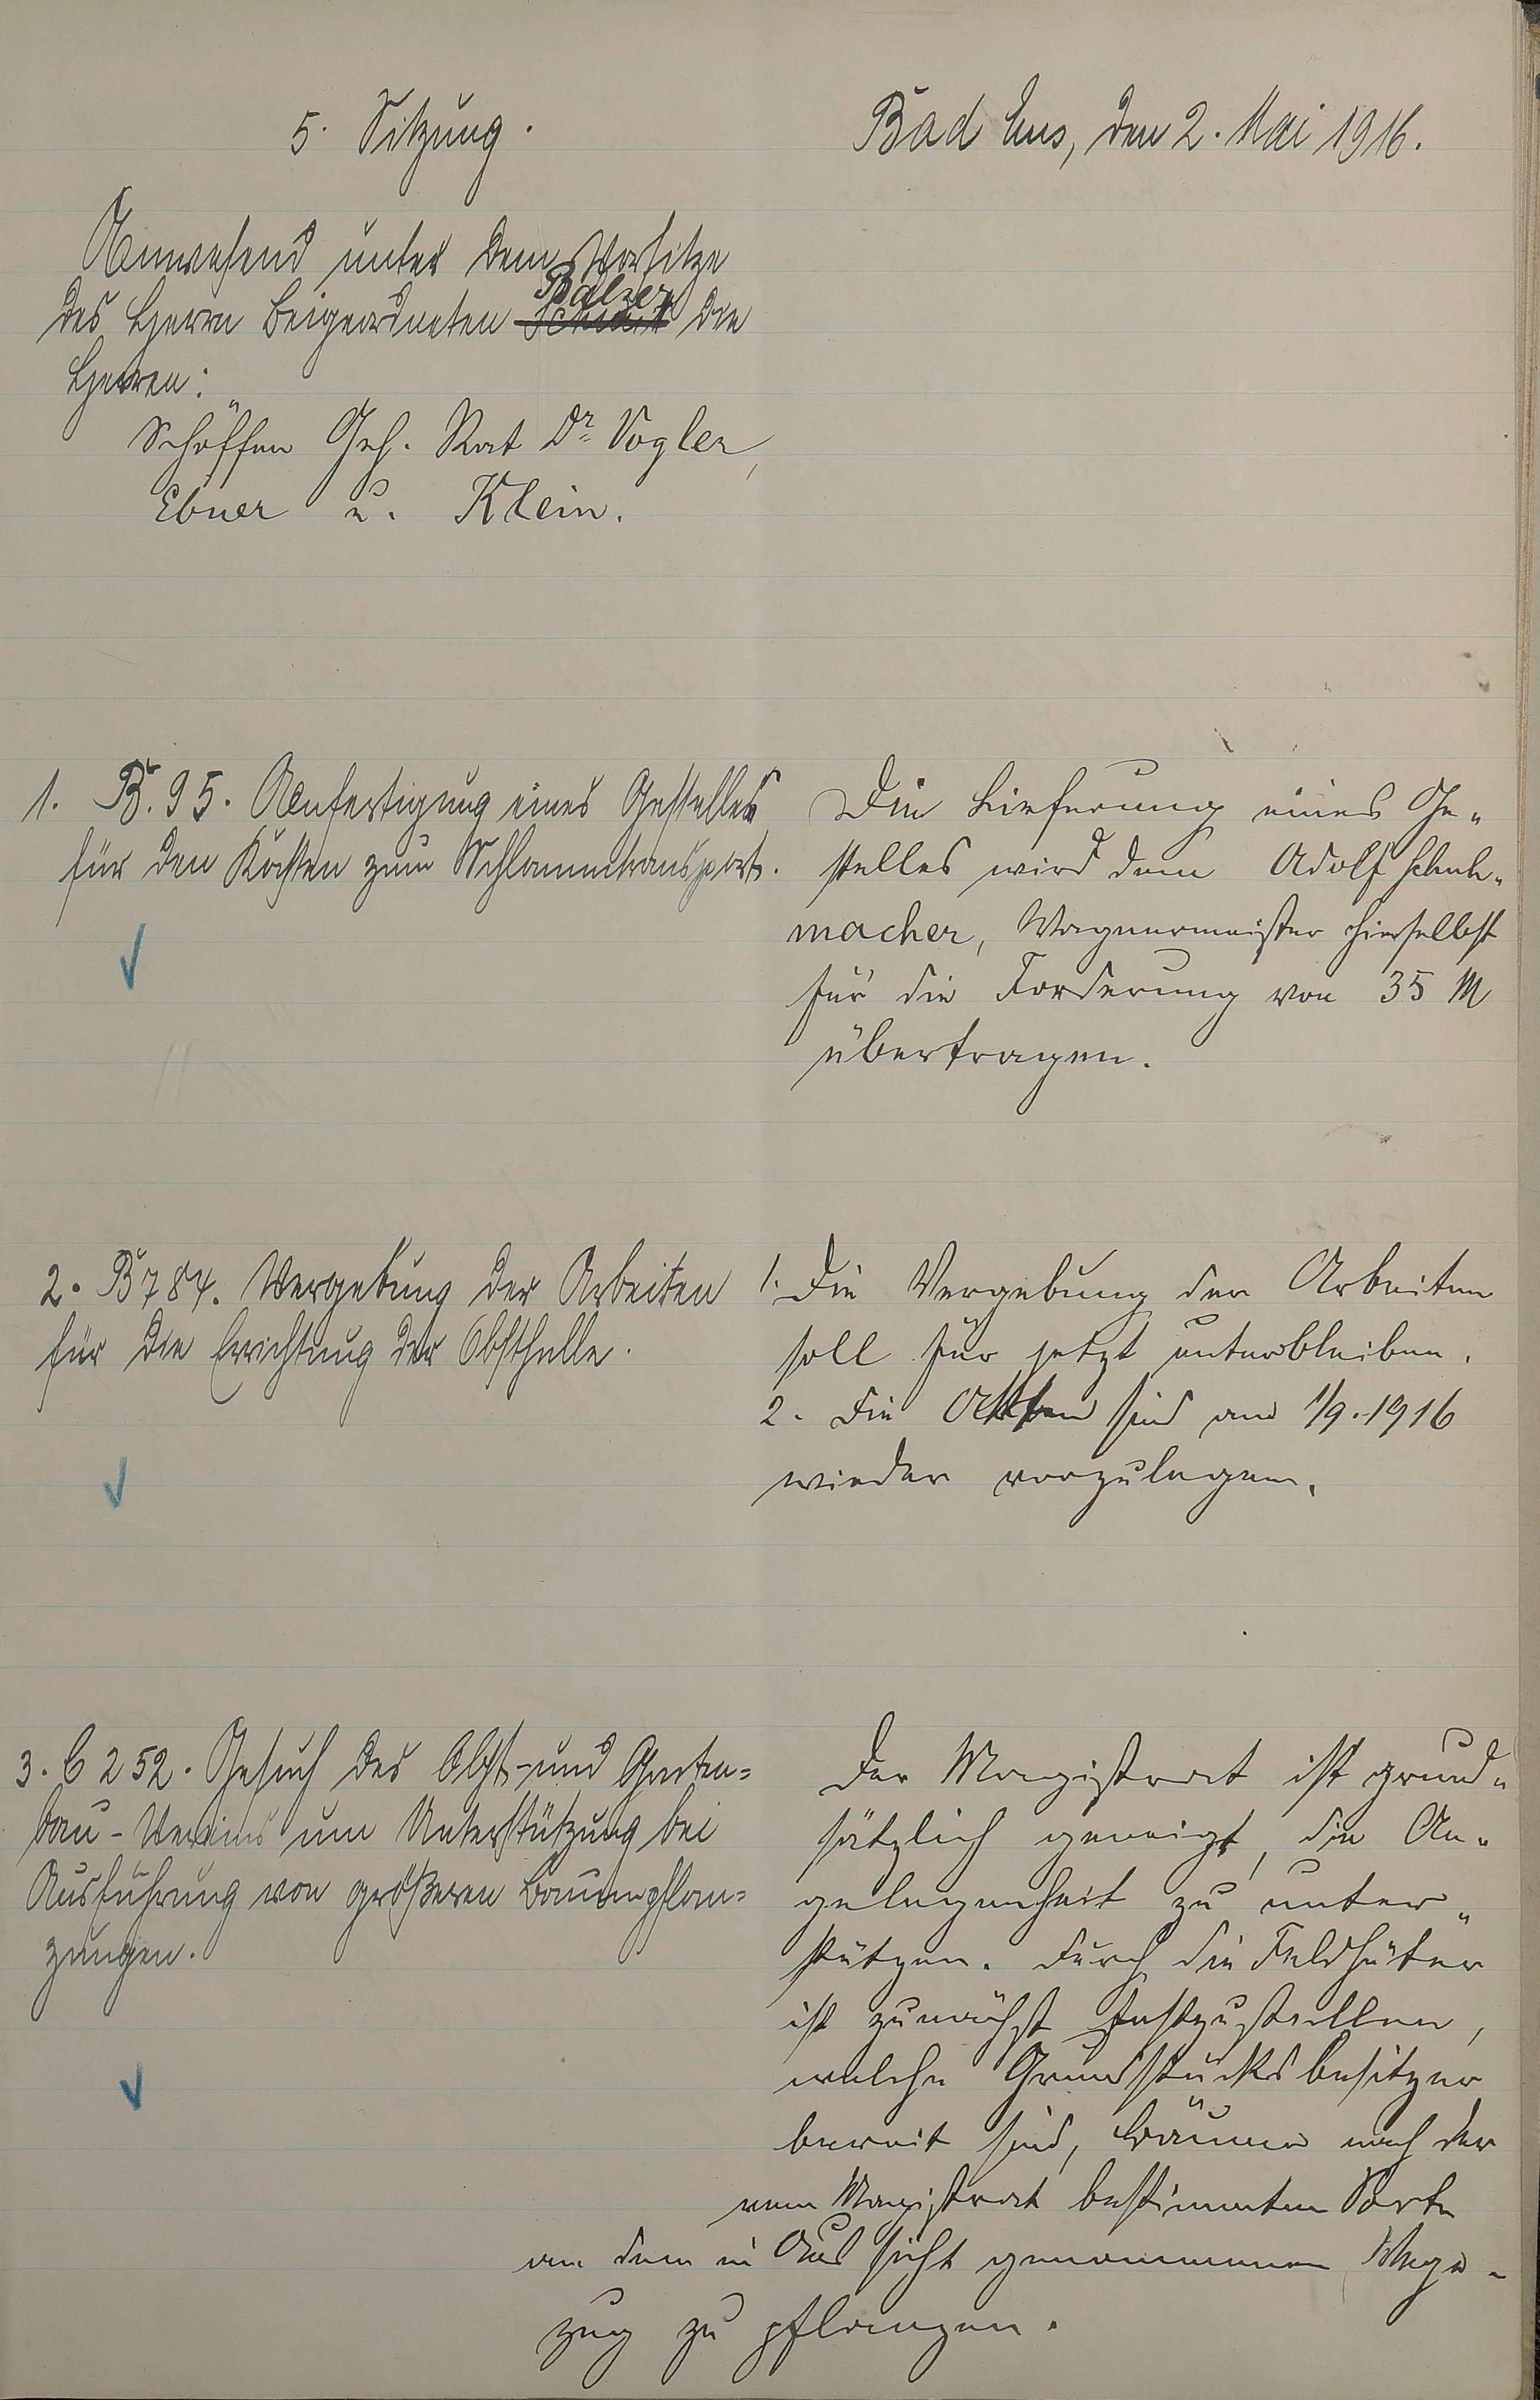 5. Sitzung.
Bad Ems, den 2. Mai 1916.
Anwesend unter dem Vorsitze
des Herrn Beigeordneten Balzer die
Herren:
Schöffen Geh. Rat Dr. Vogler,
Ebner u. Klein.
1. B. 95. Anfertigung eines Gestelles
für den Kasten zum Schlammtransport.
Die Lieferung eines Ge-
stelles wird dem Adolf Schuh-
macher, Wagnermeister hierselbst
für die Forderung von 35 M
übertragen.
2. B 784. Vergebung der Arbeiten
für die Errichtung der Obsthalle.
1. Die Vergebung der Arbeiten
soll für jetzt unterbleiben.
2. Die Akten sind am 1/9. 1916
wieder vorzulegen.
3. C 252. Gesuch des Obst- und Garten-
bau-Vereins um Unterstützung bei
Ausführung von größeren Baumpflan-
zungen.
Der Magistrat ist grund-
sätzlich geneigt, die An-
gelegenheit zu unter-
stützen. Durch die Feldhüter
ist zunächst festzustellen,
welche Grundstücksbesitzer
bereit sind, Bäume nach der
vom Magistrat bestimmten Sorte
an dem in Aussicht genommenen Wege-
zug zu pflanzen.